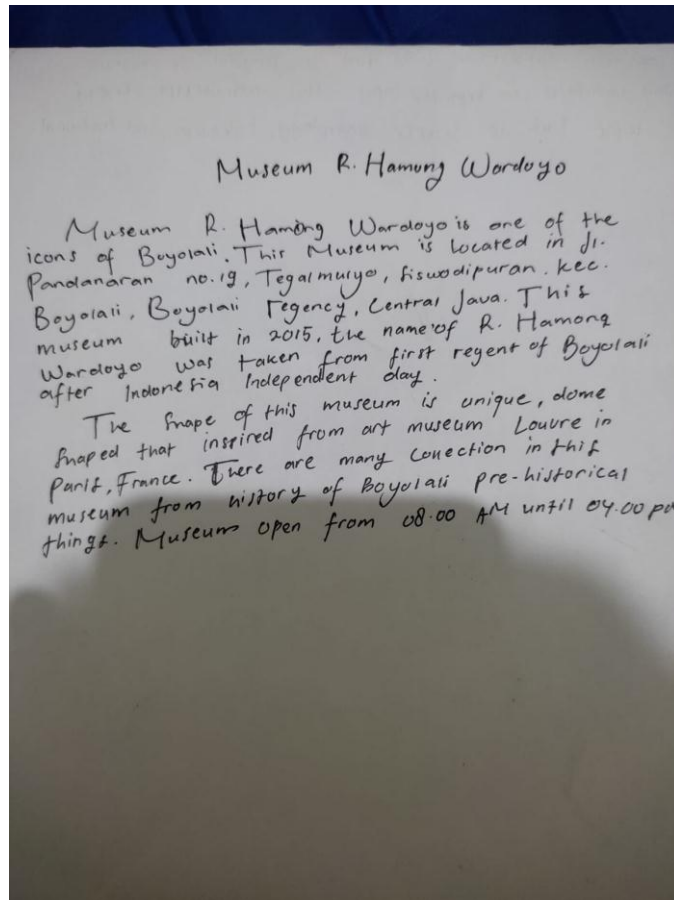 Museum R. Hamong Wardoyo
Museum R. Hamong Wardoyo is one of the
icons of Boyolali. This Museum is located in Jl.
Pandanaran no.19, Tegalmulyo, Siswodipuran. kec.
Boyolali, Boyolali regency, Central Java. This
museum built in 2015, the name of R. Hamong
Wardoyo was taken from first regent of Boyolali
after Indonesia Independent day.
The Shape of this museum is unique, dome
Shaped that inspired from art museum Louvre in
Paris, France. There are many Conection in this
museum from history of Boyolali pre-historical
things. Museum open from 08.00 AM until 04.00 pm